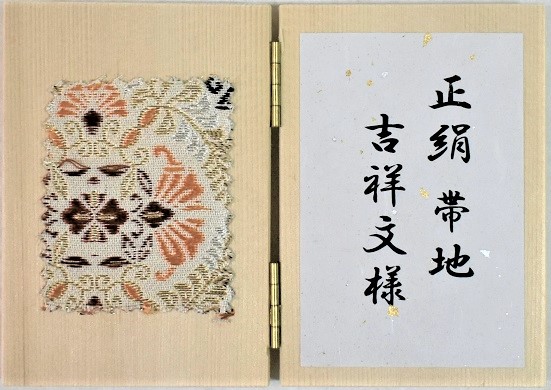 正絹 帯地
吉祥文様